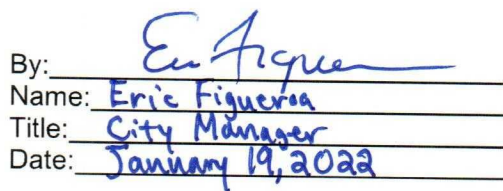 By: Eric Figueroa
Name: Eric Figueroa
Title: City Manager
Date: January 19, 2022